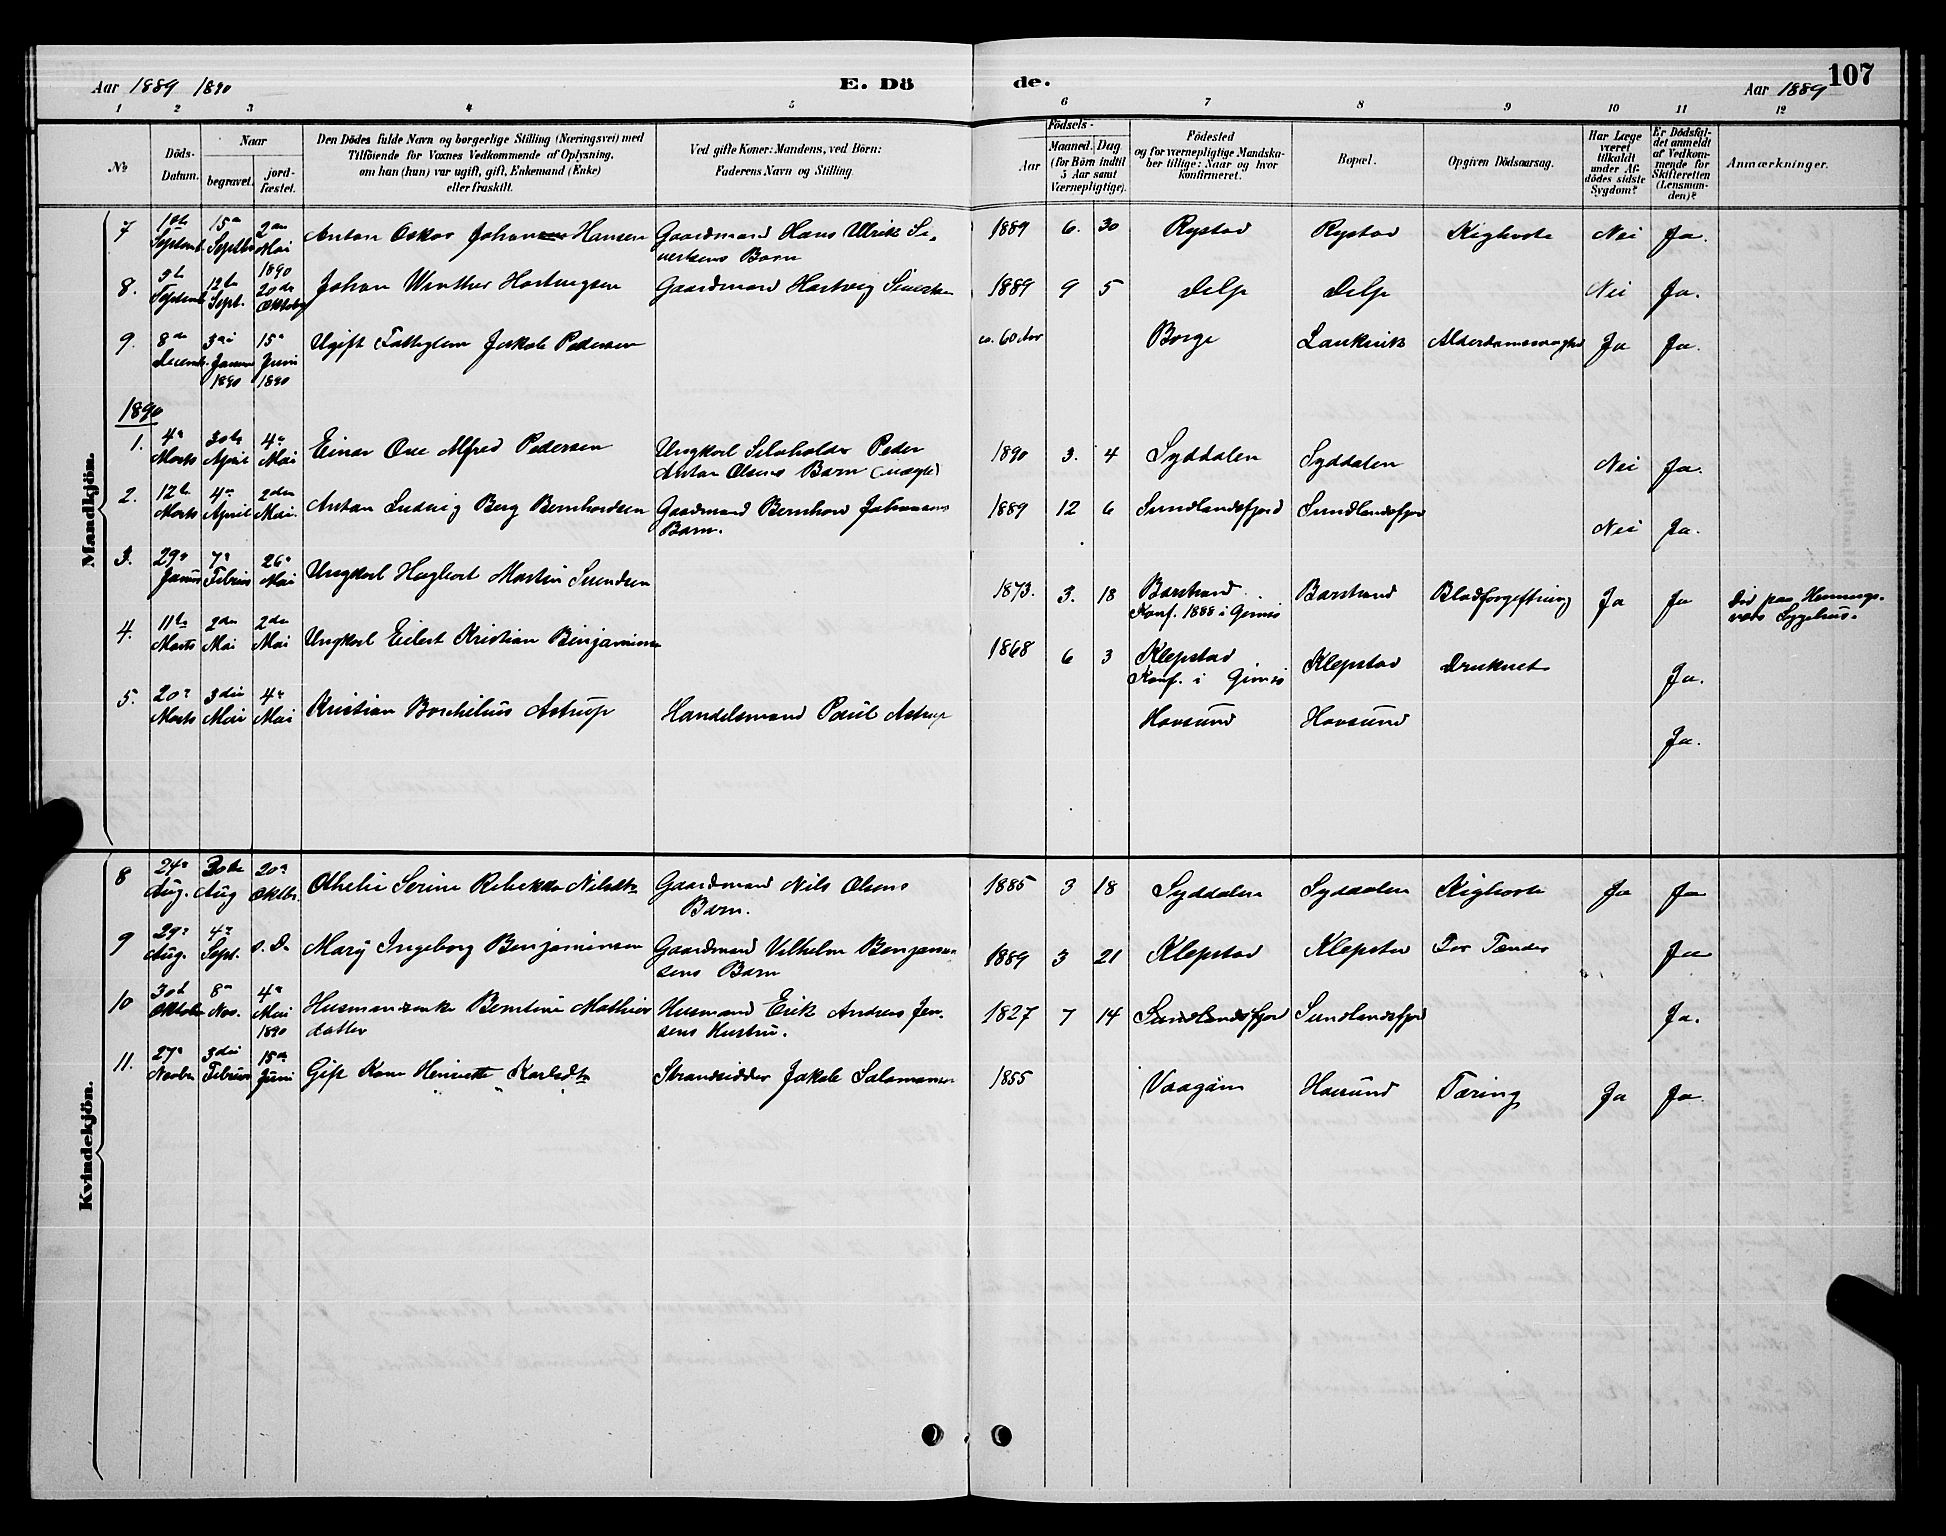 Aar 1889 1890
E. Dö
de.
Aar 1889
107
1 2 3 4 5 6 7 8 9 10 11 12
№
Döds-
Datum.
Naar
begravet.
jord-
fæstet.
Den Dödes fulde Navn og borgerlige Stilling (Næringsvei) med
Tilföiende for Voxnes Vedkommende af Oplysning,
om han (hun) var ugift, gift, Enkemand (Enke)
eller fraskilt.
Ved gifte Koner: Mandens, ved Börn:
Faderens Navn og Stilling.
Födsels-
Aar
Maaned. Dag
(for Börn indtil
5 Aar samt
Værnepligtige).
Födested
og for værnepligtige Mandska-
ber tillige: Naar og hvor
konfirmeret.
Bopæl.
Opgiven Dödsaarsag.
Har Læge
været
tilkaldt
under Af-
dödes sidste
Sygdom?
Er Dödsfal-
det anmeldt
af Vedkom-
mende for
Skifteretten
(Lensman-
den)?
Anmærkninger.
Mandkjön.
7 Septemb. Septbr 2den Mai 1890 Anton Oskar Hansen Gaardmand Hans Ulrik
Barn 1889 6. 30 Rystad Rystad Kighoste Nei Ja.
8. Septemb. 12te Sept. 20de Oktober Johan Winther Hartvigsen Gaardmand Hartvig 1889 9 5 Delp Delp Nei Ja.
9. 8de Decemb. 3die Januar 1890 15de Juni 1890 Ugift Jakob Pedersen ca. 60 Aar Borge Laukvik Alderdomssvaghed Ja Ja.
1890
1. 4de Marts 30te April 4de Mai Einar Alfred Pedersen Ungkarl Peder
Anton Olsens Barn (uægte) 1890 3. 4 Syddalen Syddalen Nei Ja.
2. 12te Marts 4de April 2den Mai. Anton Ludvig Berg Bernhardsen Gaardmand Bernhard Johansens
Barn. 1889 12 6 Sundlandsfjord Sundlandsfjord Nei Ja.
3. 29de Januar 7de Februar 26de Mai Ungkarl Hagbart Martin 1873. 3. 18 Barstrand
Konf. 1888 i Gimsö Barstrand Blodforgiftning Ja Ja Död paa Hennings-
vær Sygehus.
4. 11te Marts 2den Mai 2den Mai Ungkarl Eilert Kristian Benjaminsen 1868 6 3 Klepstad
Konf. i Gimsö Klepstad Druknet Ja.
5. 20de Marts 3die Mai 4de Mai Kristian Astrup Handelsmand Paul Astrup Hovsund Hovsund Ja.
Kvindekjön.
8 24de Aug. 30te Aug 20de Oktbr. Serine Rebekka Gaardmand Nils Olsens
Barn. 1885 3 18 Syddalen Syddalen Kighoste Ja Ja
9 29de Aug. 4de Sept. s. D. Mary Ingeborg Benjaminsen Gaardmand Vilhelm Benjamin-
sens Barn 1889 3 21 Klepstad Klepstad Tænder Ja
10 30te Oktober 8de Nov. 4de Mai 1890 Husmandsenke Mathias
datter Husmand Erik Andreas Jen-
sens Hustru. 1827 7 14 Sundlandsfjord Sundlandsfjord Ja.
11. 27de Novbr 3die Februar 15de Juni Gift Kone Henriette Karlsdtr Strandsidder Jakob Salamonsen 1855 Vaagan Hovsund Tæring Ja Ja.